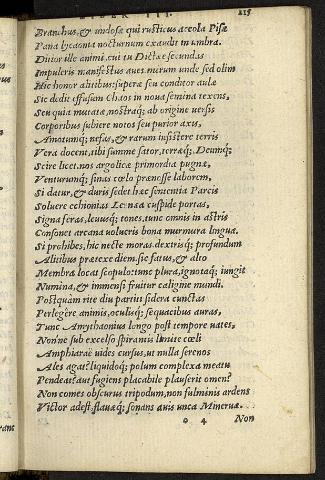 LIBER III. 215
Branchus, & undosæ qui rusticus accola Pisæ
Pana lycaonia nocturnum exaudit in umbra.
Ditior ille animi, cui tu Dictæe secundas
Impuleris manifestus aues. mirum unde sed olim
Hic honor alitibus: supera seu conditor aulæ
Sic dedit effusum Chaos in noua semina texens,
Seu quia mutatæ, nostraq; ab origine uersis
Corporibus subiere notos seu purior axis,
Amotumq; nefas, & rarum insistere terris
Vera docent, tibi summe sator, terræq; Deumq;
Scire licet. nos argolicæ primordia pugnæ,
Venturumq; sinas cœlo prænosse laborem,
Si datur, & duris sedet hæc sententia Parcis
Soluere echionias Lernæa cuspide portas,
Signa feras, leuusq; tones. tunc omnis in astris
Consonet arcana uolucris bona murmura lingua.
Si prohibes, hic necte moras. dextrisq; profundum
Alitibus prætexe diem. sic fatus, & alto
Membra locat scopulo: tunc plura, ignotaq; iungit
Numina, & immensi fruitur caligine mundi.
Postquàm rite diu partiti sidera cunctas
Perlegere animis, oculisq; sequacibus auras,
Tunc Amythaonius longo post tempore uates,
Nonne sub excelso spirantis limite cœli
Amphiaraë uides cursus, ut nulla serenos
Ales agat? liquidoq; polum complexa meatu
Pendeat? aut fugiens placabile plauserit omen?
Non comes obscurus tripodum, non fulminis ardens
Victor adest, flauæq; sonans auis unca Mineruæ.
o 4 Non